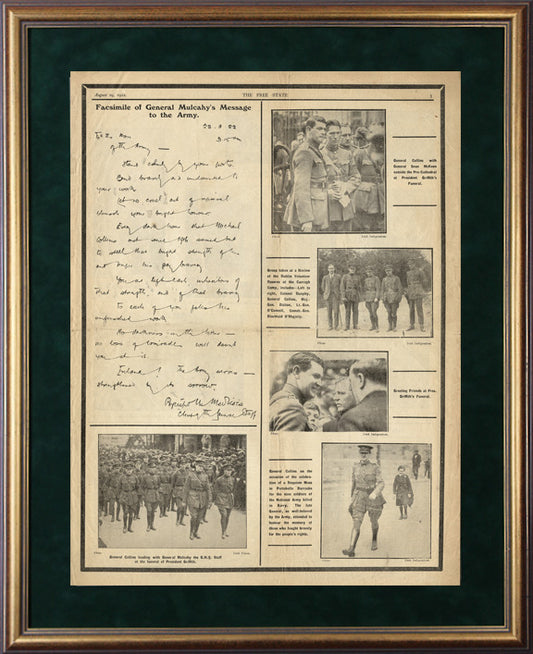 August 29, 1922.
THE FREE STATE
Facsimile of General Mulcahy's Message
to the Army.
Stand calmly by your posts.
Bend bravely and undaunted to
your work.
Let no cruel act of reprisal
blemish your bright honour.
Every dark hour that Michael
Collins met since 1916 seemed but
to steel that bright strength of his
and temper his gay bravery.
You are left each inheritors of
that strength, and of that bravery.
To each of you falls his
unfinished work.
No darkness in the hour –
no loss of comrades will daunt
you at it.
Ireland! The Army serves –
strengthened by its sorrow.
General Collins with
General Sean McKeon
outside the Pro-Cathedral
at President Griffith's
Funeral.
Photo
Irish Independent.
Group taken at a Review
of the Dublin Volunteer
Reserve at the Curragh
Camp, includes—Left to
right, Colonel Dunphy,
General Collins, Maj.-
Gen. Dalton, Lt.-Gen.
O'Connell, Comdt.-Gen.
Diarmuid O'Hegarty.
Greeting Friends at Pres.
Griffith's Funeral.
Photo
Irish Independent.
General Collins on the
occasion of the celebra-
tion of a Requiem Mass
in Portobello Barracks
for the nine soldiers of
the National Army killed
in Kerry. The late
General, so well-beloved
by the Army, attended to
honour the memory of
those who fought bravely
for the people's rights.
General Collins leading with General Mulcahy the G.H.Q. Staff
at the funeral of President Griffith.